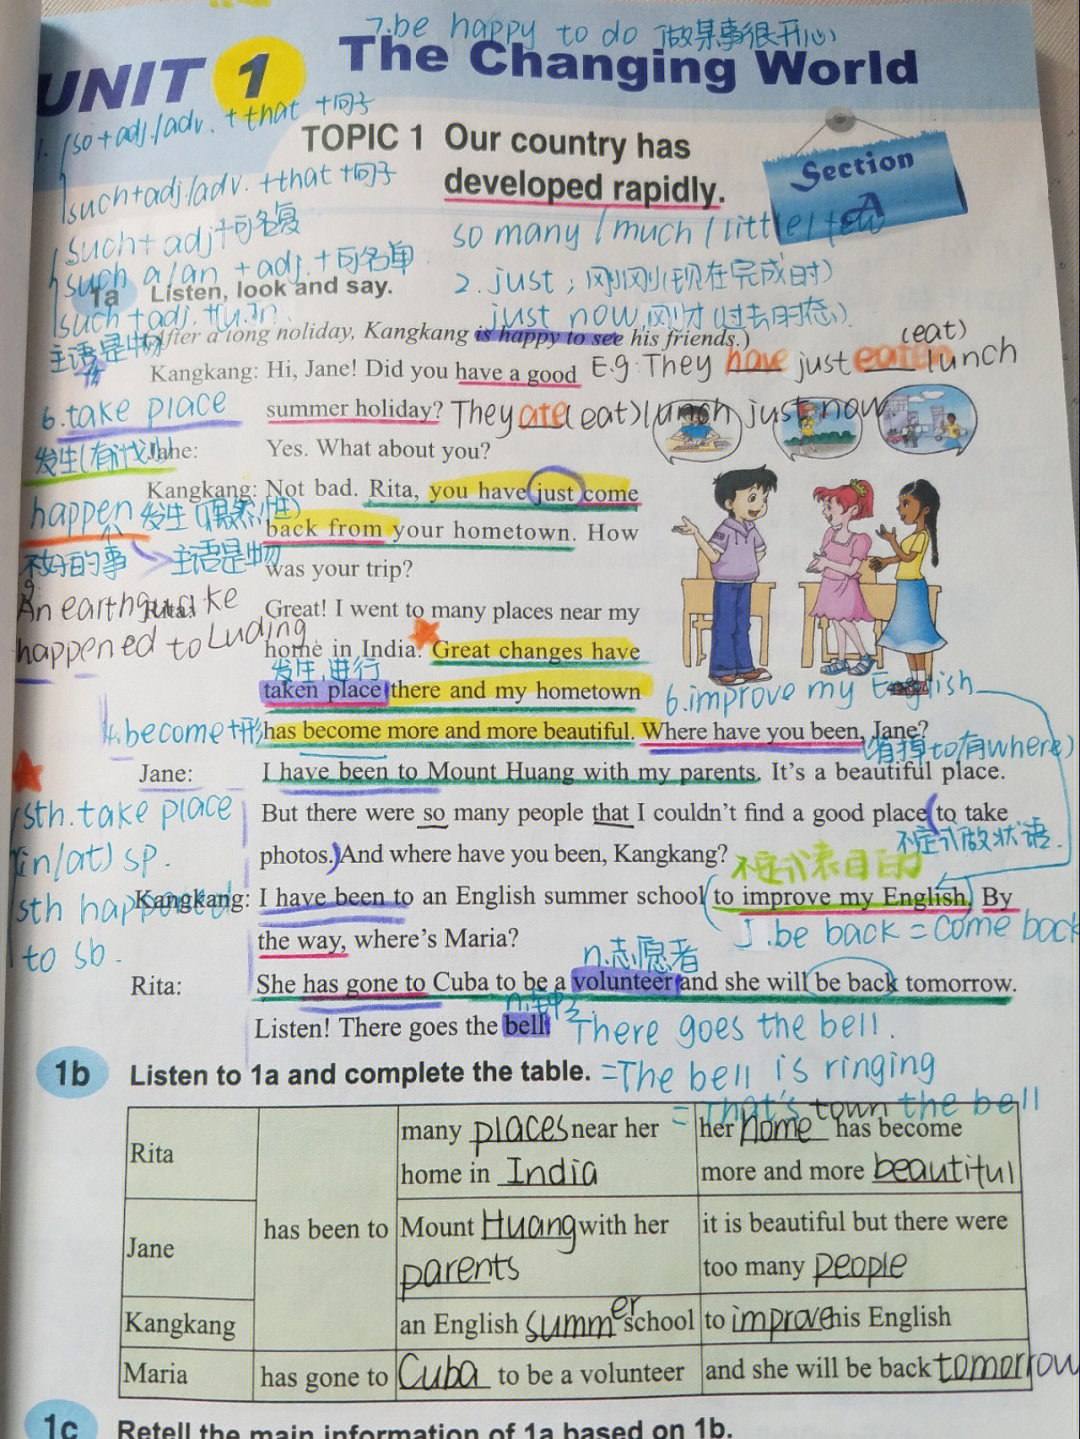 7.be happy to do 做某事很开心
UNIT 1 The Changing World
1. so+adj./adv. +that +句子
TOPIC 1 Our country has
developed rapidly.
Section A
such+adj/adv. +that +句子
such+ adj+可名复
so many / much / little / few
such a/an +adj.+可名单
2. just ; 刚刚(现在完成时)
1a Listen, look and say.
such+adj.+u.n.
just now 刚才(过去时态)
主语是物
(After a long holiday, Kangkang is happy to see his friends.)
(eat)
Kangkang: Hi, Jane! Did you have a good
E.g: They have just eaten lunch
6.take place
summer holiday?
They ate(eat)lunch just now
发生(有计划)
Jane: Yes. What about you?
Kangkang: Not bad. Rita, you have just come
happen 发生(偶然性)
back from your hometown. How
不好的事 主语是物
was your trip?
An earthquake
Rita: Great! I went to many places near my
happened to Luding
home in India. Great changes have
发生,进行
taken place there and my hometown
6.improve my English
4.become+形
has become more and more beautiful. Where have you been, Jane?
(省掉to有where)
Jane: I have been to Mount Huang with my parents. It's a beautiful place.
sth.take place
But there were so many people that I couldn't find a good place to take
不定式做状语.
(in/at) sp.
photos. And where have you been, Kangkang?
不定式表目的
sth happened
Kangkang: I have been to an English summer school to improve my English. By
to sb.
the way, where's Maria?
J.be back = come back
n.志愿者
Rita: She has gone to Cuba to be a volunteer and she will be back tomorrow.
n.钟
Listen! There goes the bell.
There goes the bell.
1b Listen to 1a and complete the table.
=The bell is ringing
= That's town the bell
Rita has been to many places near her her home has become
home in India more and more beautiful
Jane Mount Huang with her it is beautiful but there were
parents too many people
Kangkang an English summer school to improve his English
Maria has gone to Cuba to be a volunteer and she will be back tomorrow
1c Retell the main information of 1a based on 1b.